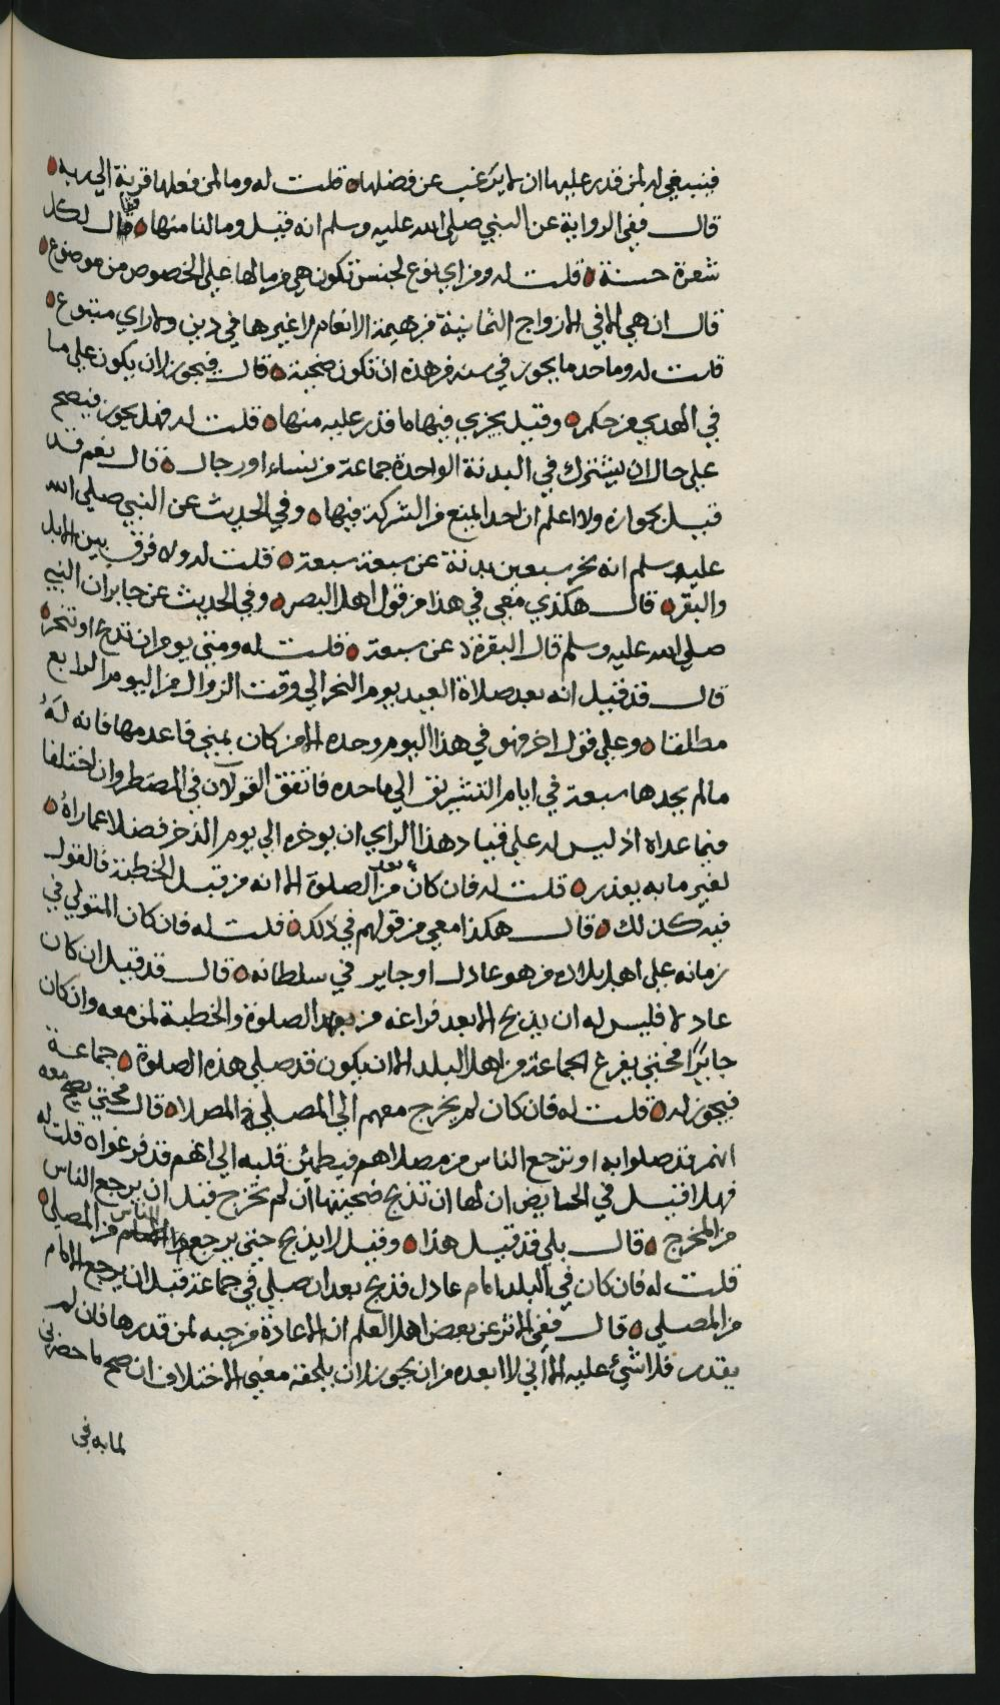 فينبغي له لمن قدر عليها ان لا يرغب عن فضلها قلت له وما لمن فعلها قربة الي ربه
قال ففي الرواية عن النبي صلي الله عليه وسلم انه قيل وما لنا منها فقال لكل
شعرة حسنة قلت له ومن اي نوع لجنس تكون هي من مالها علي الخصوص من موضوع
قال ان هي الا في الازواج الثمانية من بهيمة الانعام لا غيرها في دين ولا راي متبوع
قلت له وما حد ما يجوز في سنه من هذه ان تكون ضحية قال فيجوز لان يكون علي ما
في الهدي من حكم وقيل يجزي فيها ما قدر عليه منها قلت له فهل يجوز فيصح
علي حال ان يشترك في البدنة الواحدة جماعة من نساء او رجال قال نعم قد
قيل بجوازه ولا اعلم ان احدا لمنع من الشركة فيها وفي الحديث عن النبي صلي الله
عليه وسلم انه نحر سبعين بدنة عن سبعة سبعة قلت له ولا فرق بين الابل
والبقر قال هكذي معي في هذا من قول اهل البصر وفي الحديث عن جابر ان النبي
صلي الله عليه وسلم قال البقرة عن سبعة قلت له ومتي يومر ان تذبح او تنحر
قال قد قيل انه بعد صلاة العيد يوم النحر الي وقت الزوال من اليوم الرابع
مطلقا وعلي قول اخر فهو في هذا اليوم وحده الا من كان بمني قاعد مها فانه له
ما لم يجدها سبعة في ايام التشريق الي ما حده فاتفق القولان في المضطر وان اختلفا
فيما عداه اذ ليس له علي قياد هذا الراي ان يوخره الي يوم الاخر فضلا عما راه
لغير ما به يعذر قلت له فان كان من بعد الصلوة الا انه من قبل الخطبة فالقول
فيه كذلك قال هكذا معي من قولهم في ذلك قلت له فان كان المتولي في
زمانه علي اهل بلاده من هو عادل او جاير في سلطانه قال قد قيل ان كان
عادلا فليس له ان يذبح الا بعد فراغه من بعد الصلوة والخطبة لمن معه وان كان
جايرا فحتي يفرغ الجماعة من اهل البلد الا ان يكون قد صلي هذه الصلوة جماعة
فيجوز له قلت له فان كان لم يخرج معهم الي المصلي في المصلا قال فحتي يصح معه
انهم قد صلوا به او ترجع الناس من مصلاهم فيطمئن قلبه الي انهم قد فرغوا قلت له
فهل لا قيل في الحايض ان لها ان تذبح ضحيتها ان لم تخرج قبل ان يرجع الناس
من المخرج قال بلي قد قيل هذا وقيل لا يذبح حتي يرجع الناس من المصلي
قلت له فان كان في البلد امام عادل فذبح بعد ان صلي في جماعة قبل ان يرجع الامام
من المصلي قال ففي الاثر عن بعض اهل العلم ان الاعادة من حبه لمن قدرها فان لم
يقدر فلا شيء عليه الا اني لا ابعده من ان يجوز لان يلحقه معني الاختلاف ان صح ما حضرني
لما به في